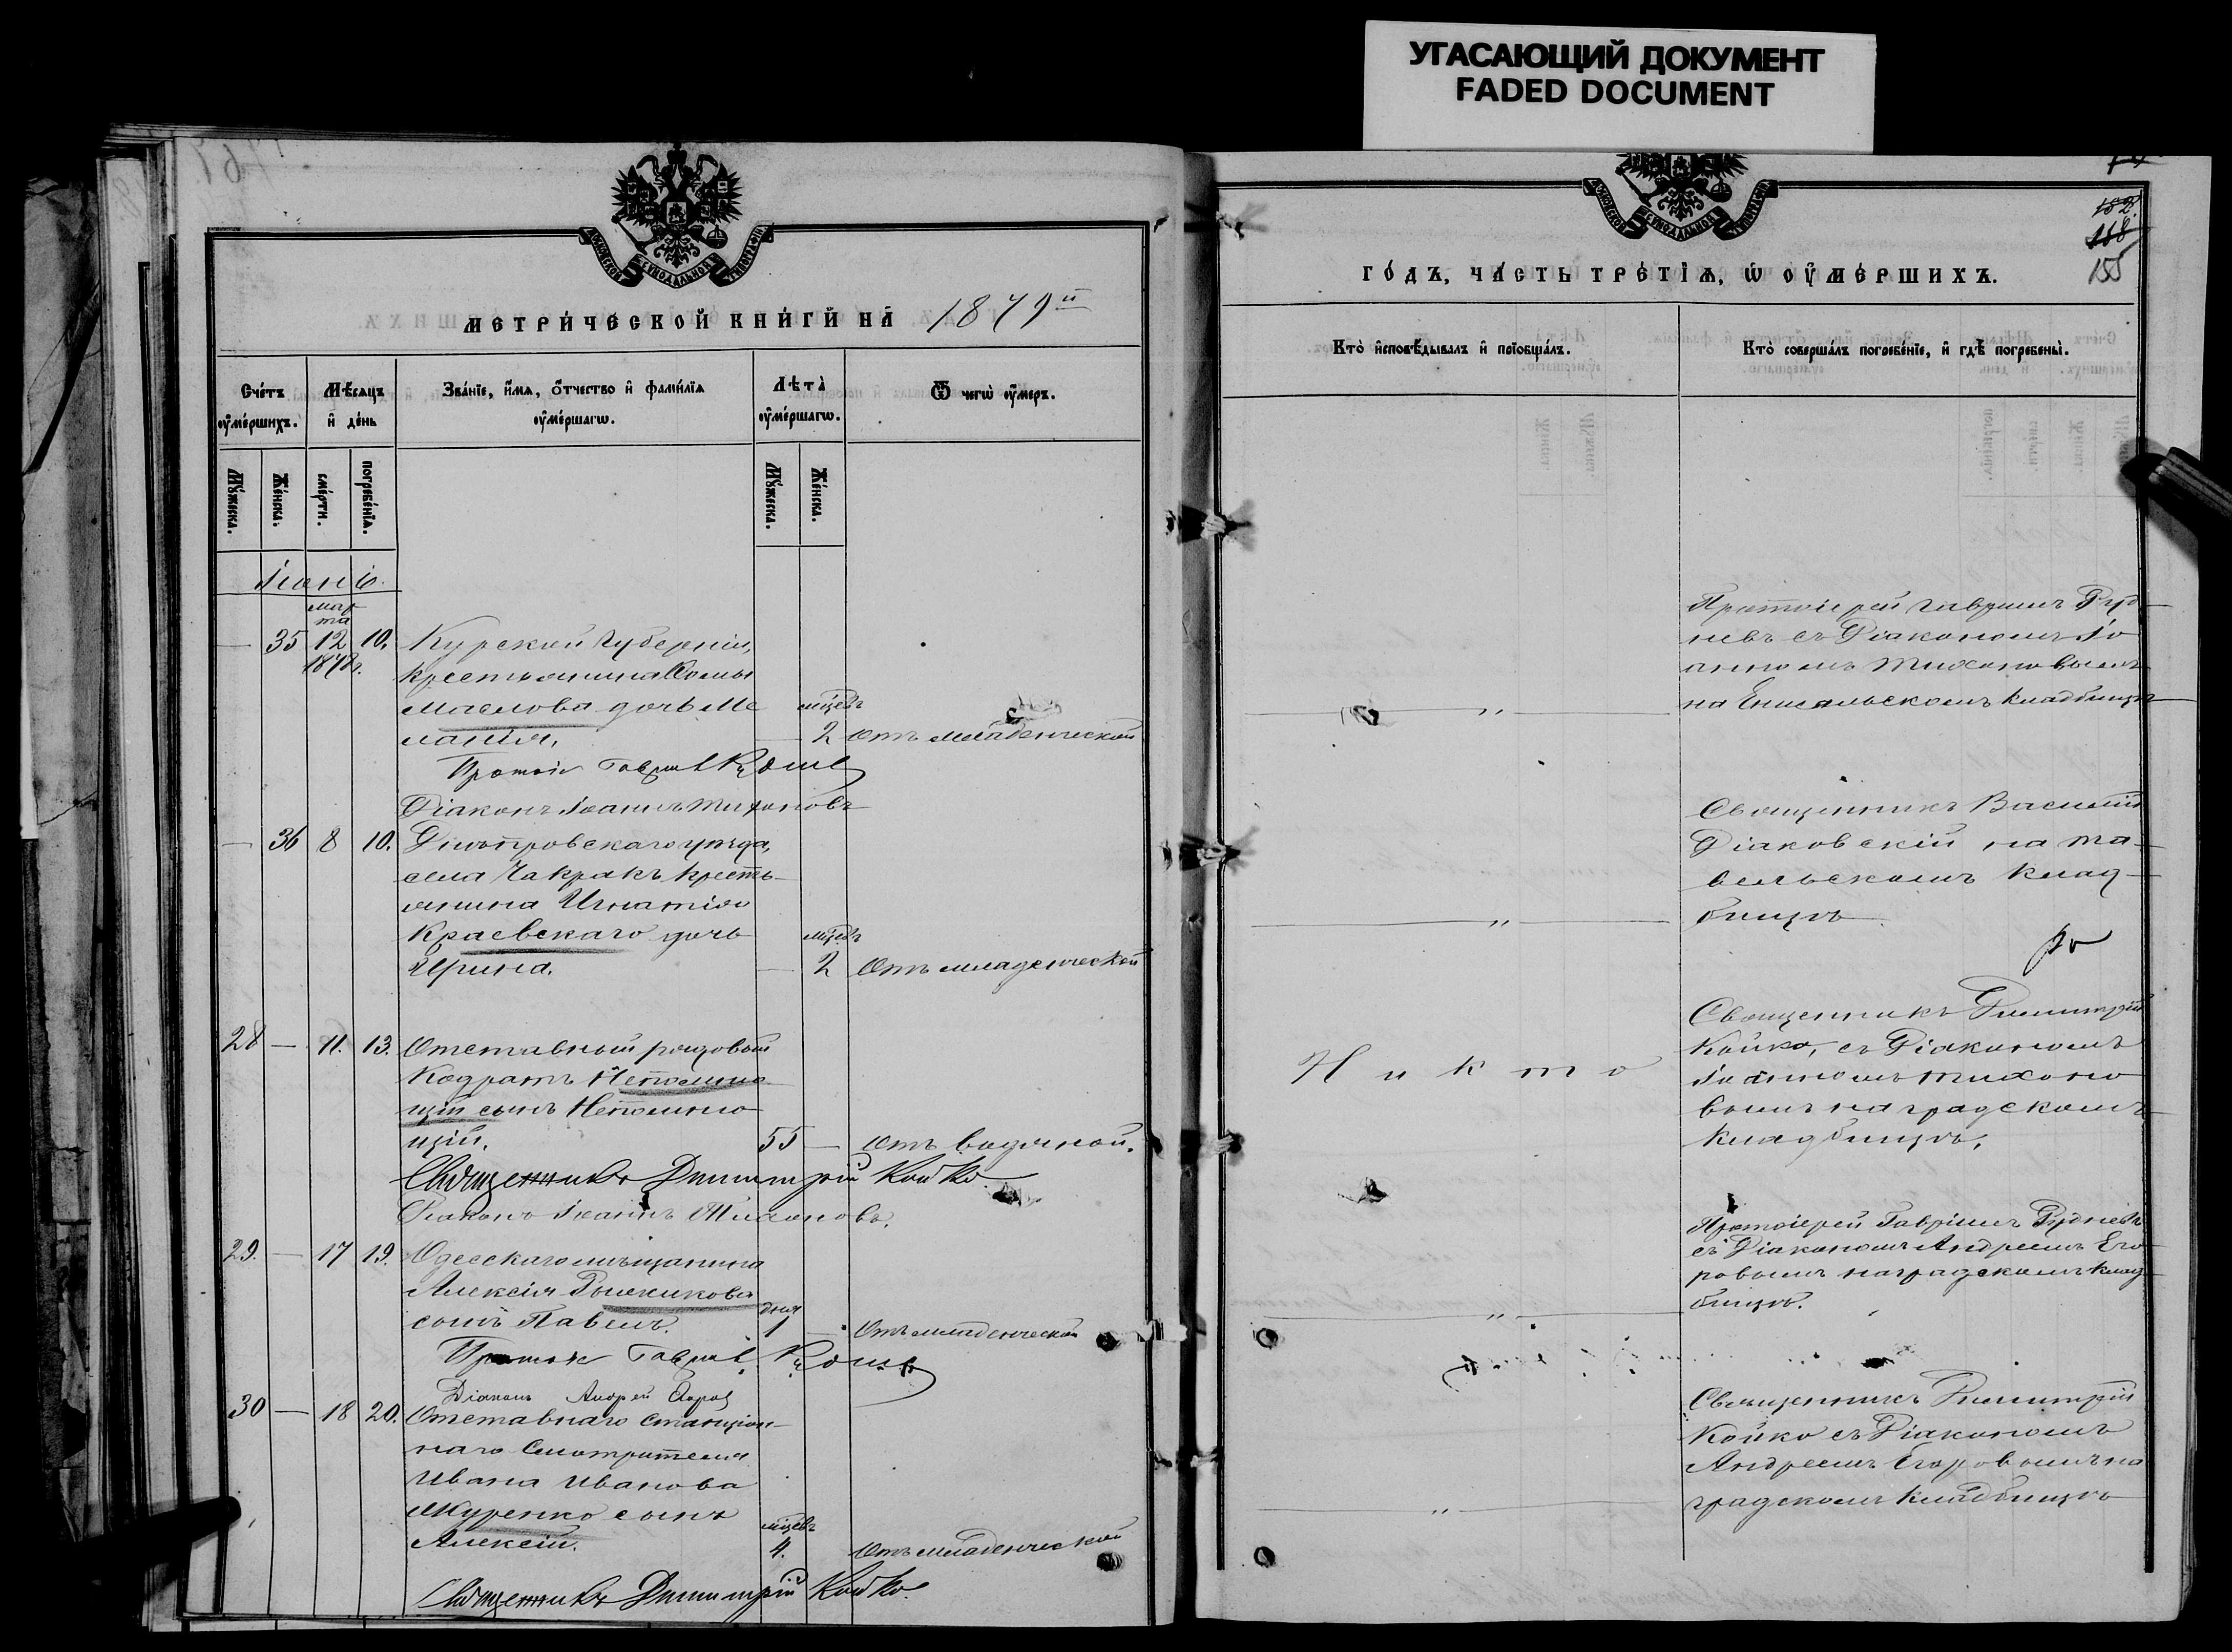 УГАСАЮЩИЙ ДОКУМЕНТ
FADED DOCUMENT
МОСКОВСКОЙ СѴНОДАЛЬНОЙ ТИПОГРАФІИ
МЕТРИ́ЧЕСКОЙ КНИ́ГИ НА̀ 1879й
Сче́тъ ᲂу҆ме́ршихъ.
Мѣ́сяцъ и҆ де́нь
Зва́нїе, и҆́мѧ, ѻ҆́тчество и҆ фами́лїѧ ᲂу҆ме́ршагѡ.
Лѣ̑та̀ ᲂу҆ме́ршагѡ.
Ѿ чегѡ̀ ᲂу҆́меръ.
Мꙋ́жеска.
Же́нска.
сме́рти.
погребе́нїѧ.
Мꙋ́жеска.
Же́нска.
Іюнь
мар
та
35 12 10. Курской Губерніи,
1878г.
крестьянина Козмы
Маслова дочь Ме
мцевъ
ланія,
2 отъ младенческой
Протоіе Гавріил Руднев
Діаконъ Іоаннъ Тихоновъ
36 8 10. Днѣпровскаго уѣзда,
села Чакракъ кресть-
янина Игнатія
Краевскаго дочь
мцевъ
Ирина.
2 отъ младенческой
28 — 11. 13. Отставный рядовый
Кодратъ Непомню
щій сынъ Непомню
щій.
55 — отъ водяной.
Священникъ Димитрій Койко
Діаконъ Іоаннъ Тихоновъ.
29. — 17 19. Одесскаго мѣщанина
Алексія
сынъ Павелъ.
дня
1 — отъ младенческой
Протоіе Гавріил Руднев
Діаконъ Андрей Егоров
30 — 18 20. Отставнаго станціон-
наго Смотрителя
Ивана Иванова
сынъ
мцевъ
Алексій.
4. отъ младенческой
Священникъ Димитрій Койко.
152
118
155
ГО́ДЪ, ЧА́СТЬ ТРЕ́ТЇѦ, Ѡ҆ ОУ҆МЕ́РШИХЪ.
Кто̀ и҆сповѣ́дывалъ и҆ прїобща́лъ.
Кто̀ соверша́лъ погребе́нїе, и҆ гдѣ̀ погребены̀.
Протоіерей Гавріилъ Руд-
невъ съ Діакономъ Іо
анномъ Тихоновымъ
на кладбищѣ
"
Священникъ Василій
Діаковскій на та-
вельскомъ клад-
бищѣ
"
Священникъ Димитрій
Койко, съ Діакономъ
Іоанномъ Тихоно
вымъ на градскомъ
кладбищѣ.
Никто
Протоіерей Гавріилъ Рудневъ
съ Діакономъ Андреемъ Его
ровымъ на градскомъ клад
бищѣ.
"
Священникъ Димитрій
Койко съ Діакономъ
Андреемъ Егоровымъ на
градскомъ кладбищѣ
"